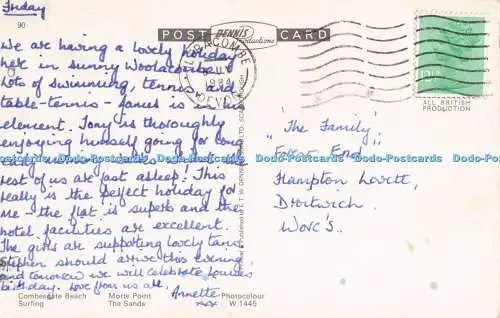 Friday
90
We are having a lovely holiday
here in sunny Woolacombe!
Lots of swimming, tennis, and
table-tennis - James is in his
element. Tony is thoroughly
enjoying himself going for long
early morning walks - the
rest of us are fast asleep! This
really is the perfect holiday for
me - the flat is superb and the
hotel facilities are excellent.
The girls are supporting lovely tans.
Stephen should arrive this evening,
and tomorrow we will celebrate Louise's
birthday. Love from us all,
Annette
xx
Combesgate Beach
Surfing
Morte Point
The Sands
Photocolour
W 1445
POST
DENNIS
Productions
CARD
ILFRACOMBE
1984
DEVON
12½P
ALL BRITISH
PRODUCTION
"The Family",
Forest End,
Hampton Lovett,
Droitwich,
Worc's.
Dodo-Postcards Dodo-Postcards Dodo-Postcards Dodo-Postcards Dodo-Postcards